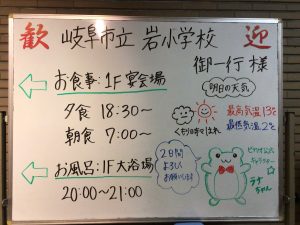 歓 迎
岐阜市立 岩小学校
御一行様
お食事:1F宴会場
夕食 18:30〜
朝食 7:00〜
お風呂:1F大浴場
20:00〜21:00
明日の天気
くもり時々晴れ
最高気温13℃
最低気温2℃
2日間
よろしく
お願いします
キャラクター
ちゃん